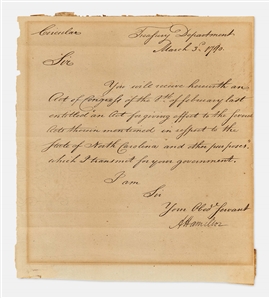 Circular
Treasury Department
March 3d 1790.
Sir
You will receive herewith an
Act of Congress of the 8th of February last
entitled an Act for giving effect to the several
Acts therein mentioned in respect to the
State of North Carolina and other purposes
which I transmit for your government.
I am
Sir
Your Obedt Servant
AHamilton